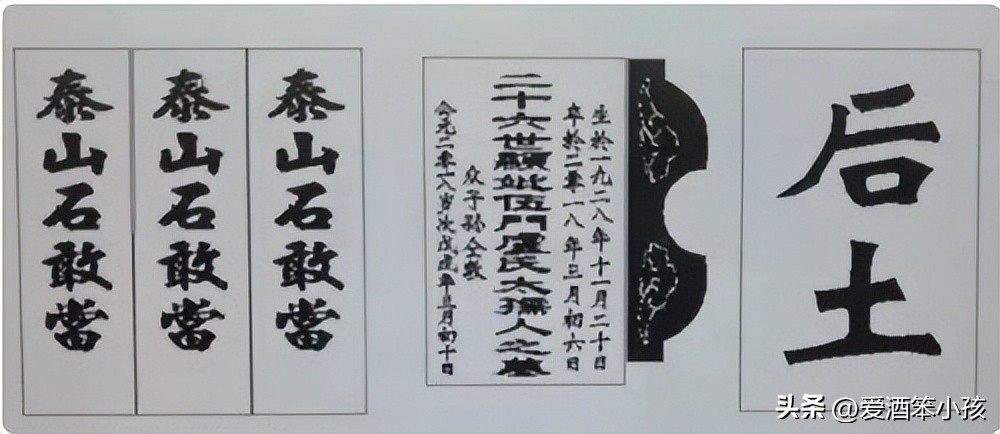 泰山石敢當
泰山石敢當
泰山石敢當
生於一九二八年十一月二十日
卒於二零一八年三月初六日
二十六世顯妣伍門盧氏太孺人之墓
众子孙仝敬
公元二零一八歲次戊戌年三月初十日
后土
头条 @爱酒笨小孩